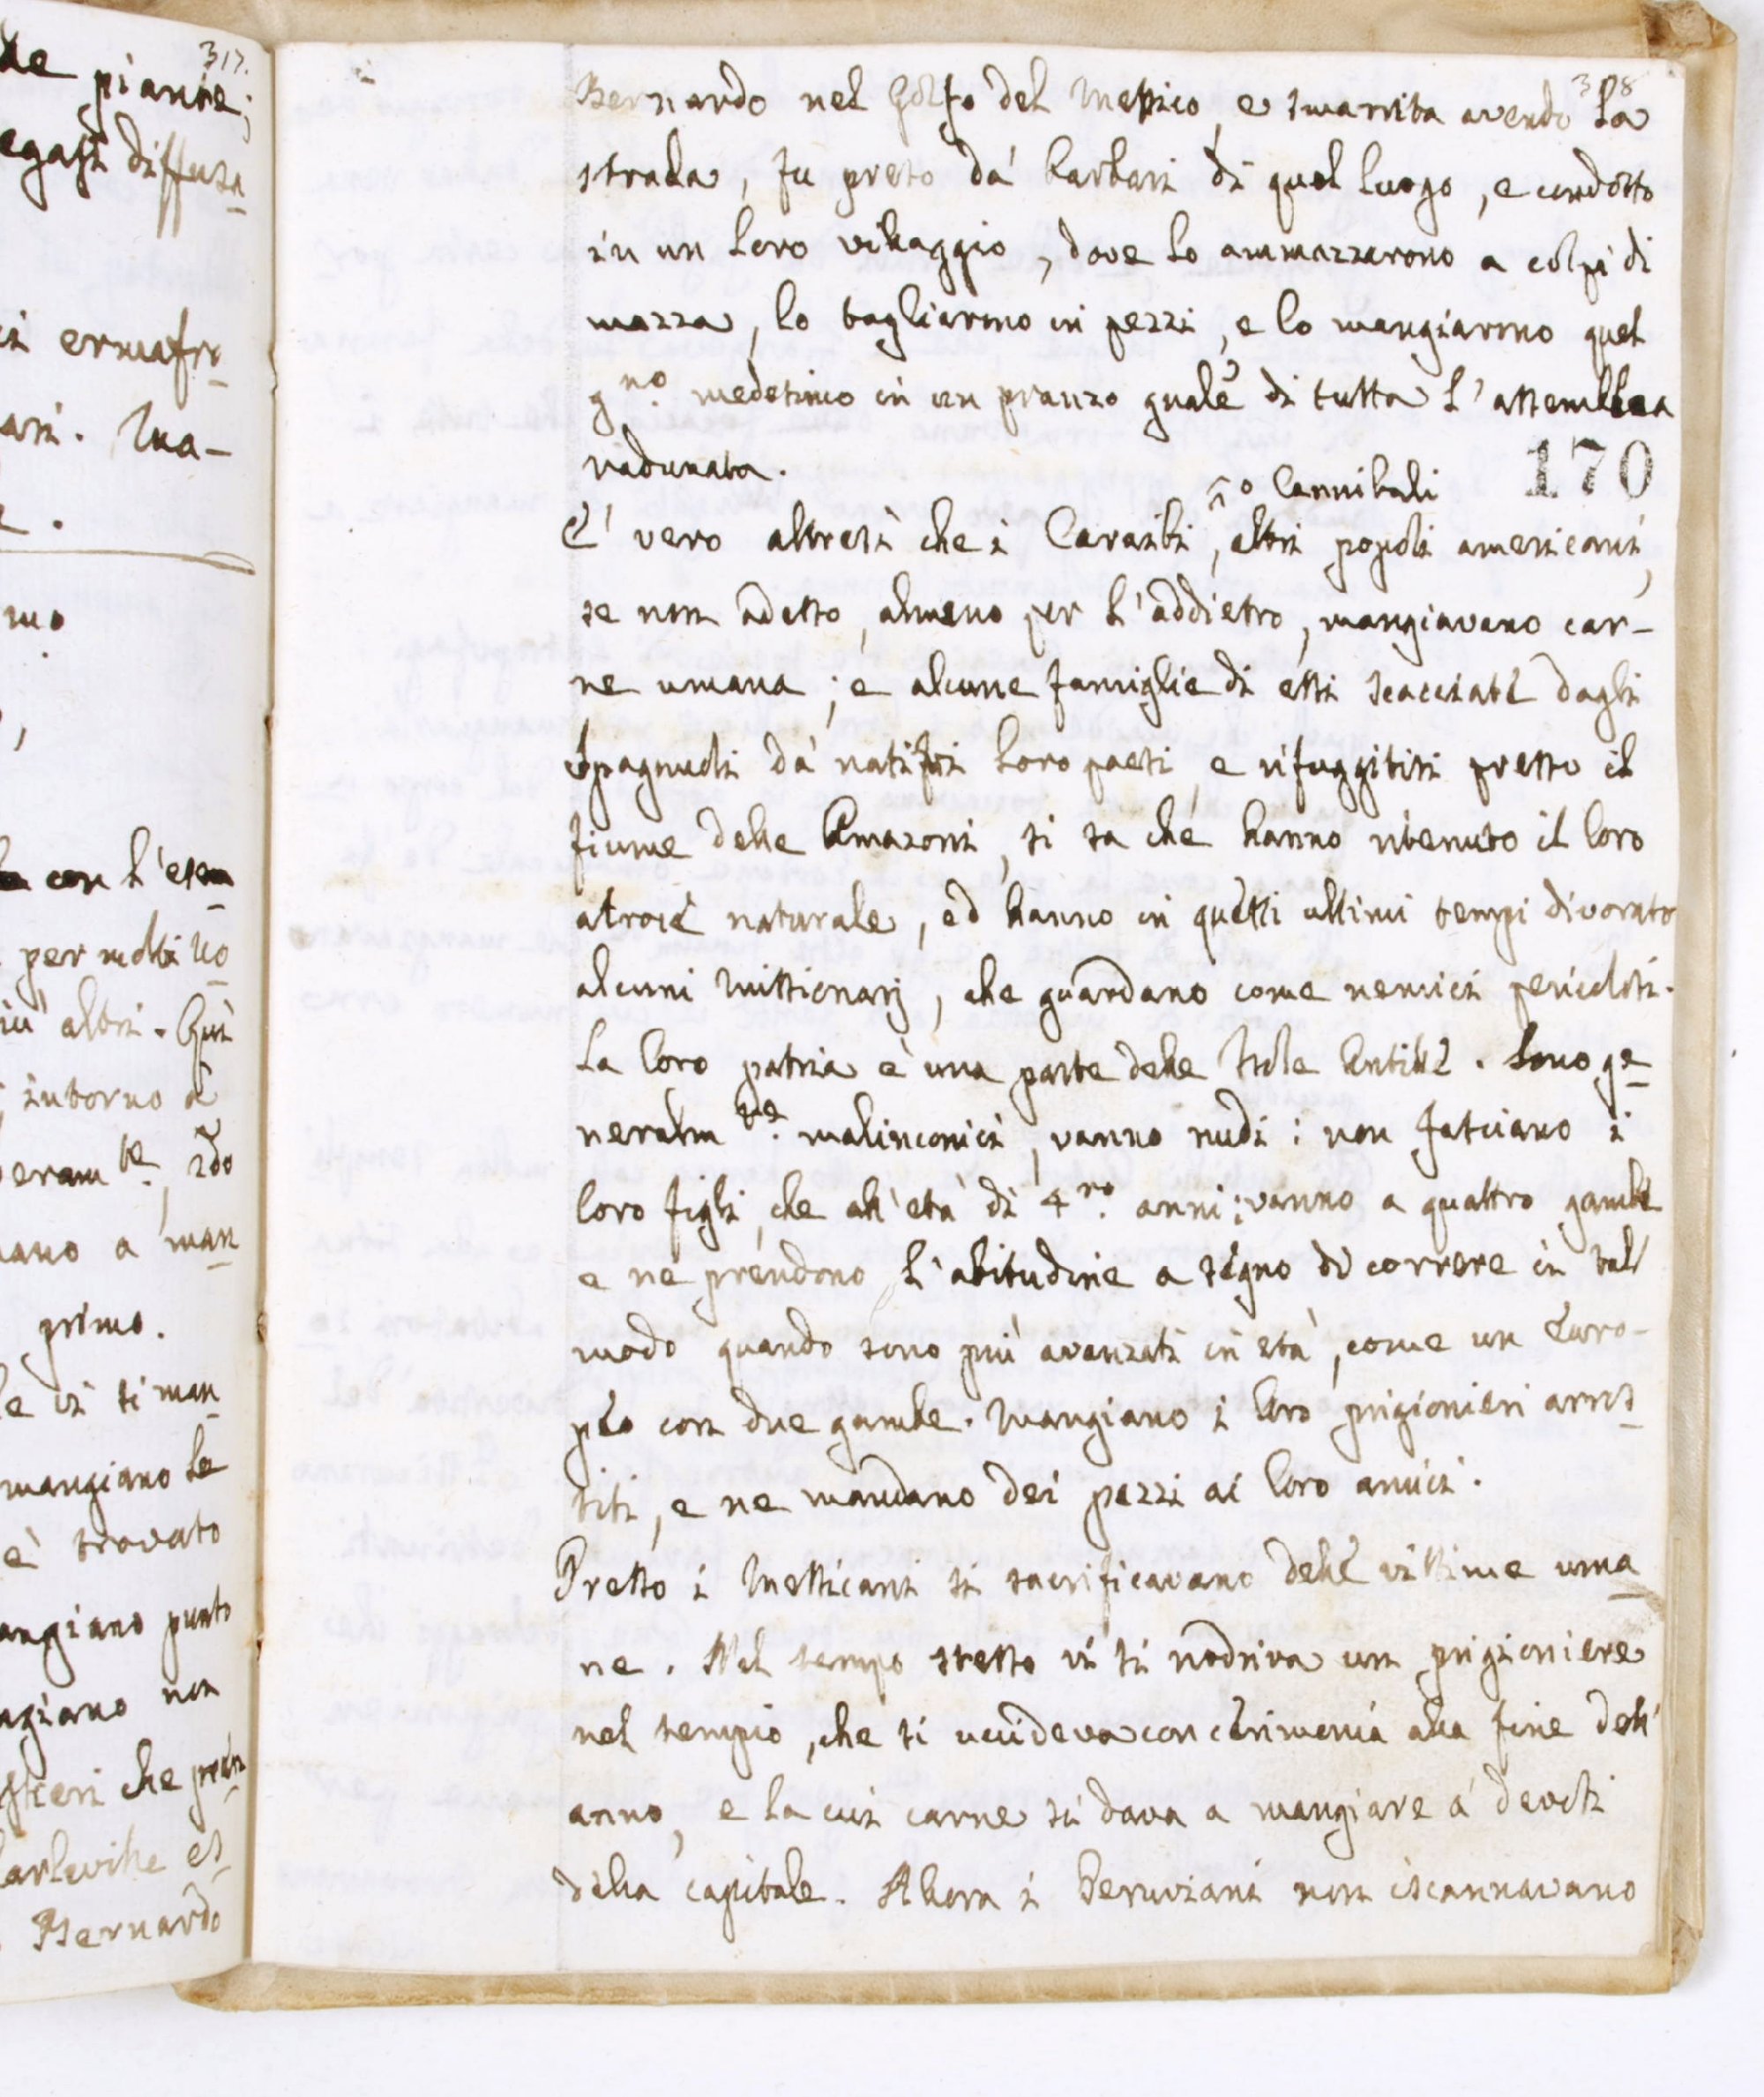 317.
de piante;
egasi diffusa
ermafro
ari. Ma-
mo
con l'esem
per molti uo
iù altri. Qui
intorno a
eram.te, 2do
ano a man
primo.
e vi si man
mangiano le
è trovato
angiano punto
ngiano non
che
arlevihe et
Bernardo
318
Bernardo nel Golfo del Messico, e smarrita avendo la
strada, fu preso da' barbari di quel luogo, e condotto
in un loro villaggio, dove lo ammazzarono a colpi di
mazza, lo tagliarono in pezzi, e lo mangiarono quel
g.no medesimo in un pranzo gnale di tutta l'assemblea
radunata.
170
o Cannibali
E' vero altresì che i Caraibi, altri popoli americani,
se non adesso, almeno per l'addietro, mangiavano car-
ne umana; e alcune famiglie di essi scacciate dagli
Spagnuoli da' natii loro paesi e rifuggitisi presso il
fiume delle Amazoni, si sa che hanno ritenuto il loro
atroce naturale, ed hanno in questi ultimi tempi divorato
alcuni Missionarj, che guardano come nemici pericolosi.
La loro patria è una parte delle Isole Antille. Sono ge
neralm.te malinconici, vanno nudi: non fasciano i
loro figli, che all'età di 4.ro anni: vanno a quattro gambe
e ne prendono l'abitudine a segno di correre in tal
modo quando sono più avanzati in età, come un Euro-
peo con due gambe. Mangiano i loro prigionieri arros
titi, e ne mandano dei pezzi ai loro amici.
Presso i Messicani si sacrificavano delle vittime uma
ne. Nel tempo stesso vi si nodriva un prigioniere
nel tempio, che si uccideva con cerimonia alla fine dell'
anno, e la cui carne si dava a mangiare a' devoti
della capitale. Allora i Peruviani non iscannavano